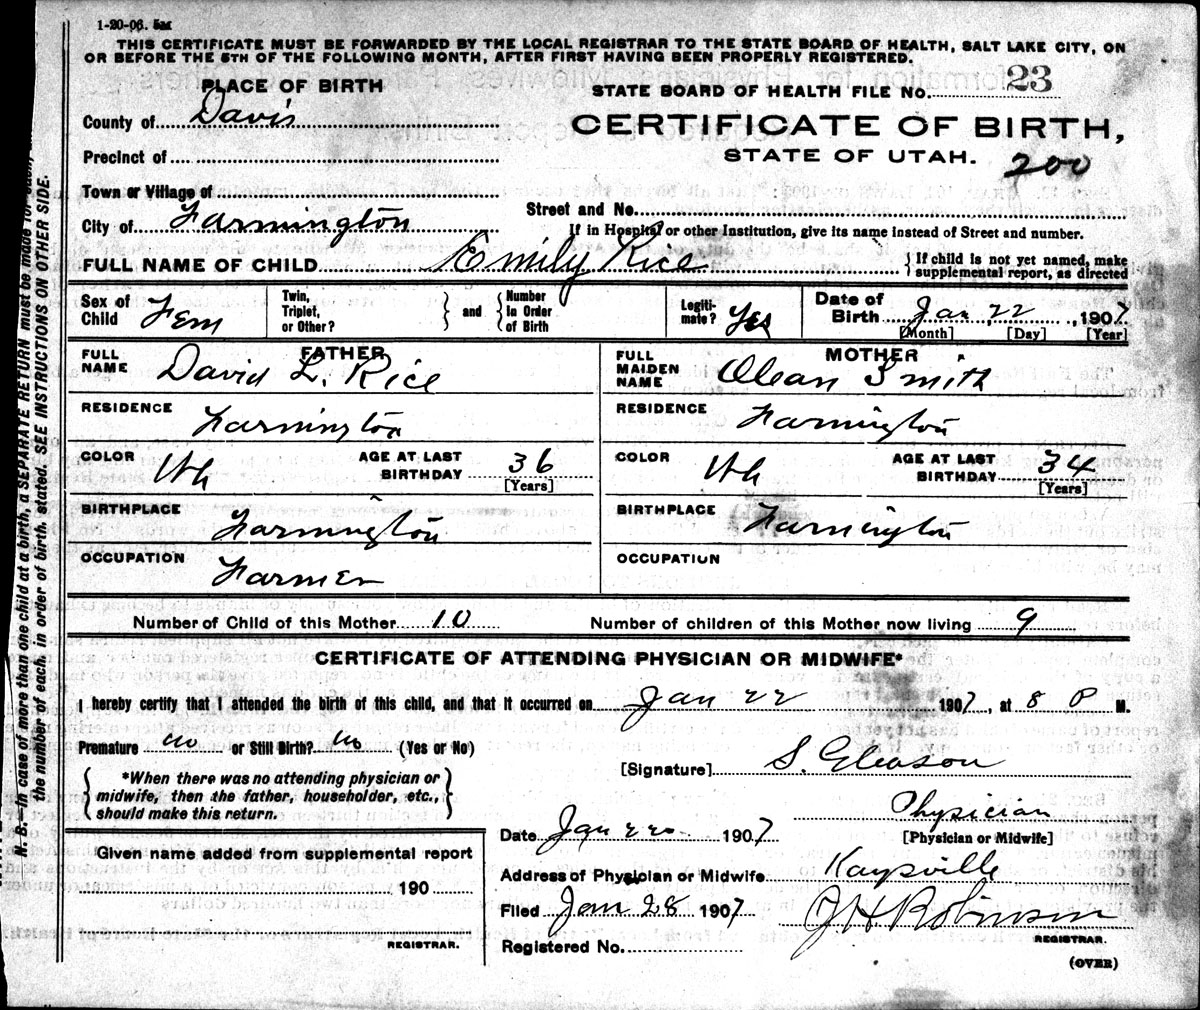 1-20-06.
THIS CERTIFICATE MUST BE FORWARDED BY THE LOCAL REGISTRAR TO THE STATE BOARD OF HEALTH, SALT LAKE CITY, ON
OR BEFORE THE 5TH OF THE FOLLOWING MONTH, AFTER FIRST HAVING BEEN PROPERLY REGISTERED.
PLACE OF BIRTH
County of Davis
Precinct of
Town or Village of
City of Farmington
STATE BOARD OF HEALTH FILE NO. 23
CERTIFICATE OF BIRTH,
STATE OF UTAH.
200
Street and No.
If in Hospital or other Institution, give its name instead of Street and number.
FULL NAME OF CHILD Emily Rice
If child is not yet named, make
supplemental report, as directed
Sex of Child Fem
Twin, Triplet, or Other?
and
Number in Order of Birth
Legitimate? Yes
Date of Birth Jan 22, 1907
[Month] [Day] [Year]
FATHER
FULL NAME David L. Rice
RESIDENCE Farmington
COLOR Wh
AGE AT LAST BIRTHDAY 36
[Years]
BIRTHPLACE Farmington
OCCUPATION Farmer
MOTHER
FULL MAIDEN NAME Olean Smith
RESIDENCE Farmington
COLOR Wh
AGE AT LAST BIRTHDAY 34
[Years]
BIRTHPLACE Farmington
OCCUPATION
Number of Child of this Mother 10
Number of children of this Mother now living 9
CERTIFICATE OF ATTENDING PHYSICIAN OR MIDWIFE*
I hereby certify that I attended the birth of this child, and that it occurred on Jan 22 1907, at 8 P M.
Premature no or Still Birth? No (Yes or No)
*When there was no attending physician or
midwife, then the father, householder, etc.,
should make this return.
[Signature] S. Gleason
Physician
[Physician or Midwife]
Date Jan 22 1907
Address of Physician or Midwife Kaysville
Filed Jan 28 1907 J H Robinson
REGISTRAR.
Registered No.
(OVER)
Given name added from supplemental report
190
REGISTRAR.
N. B.—In case of more than one child at a birth, a SEPARATE RETURN must be made for each, and
the number of each, in order of birth, stated. SEE INSTRUCTIONS ON OTHER SIDE.